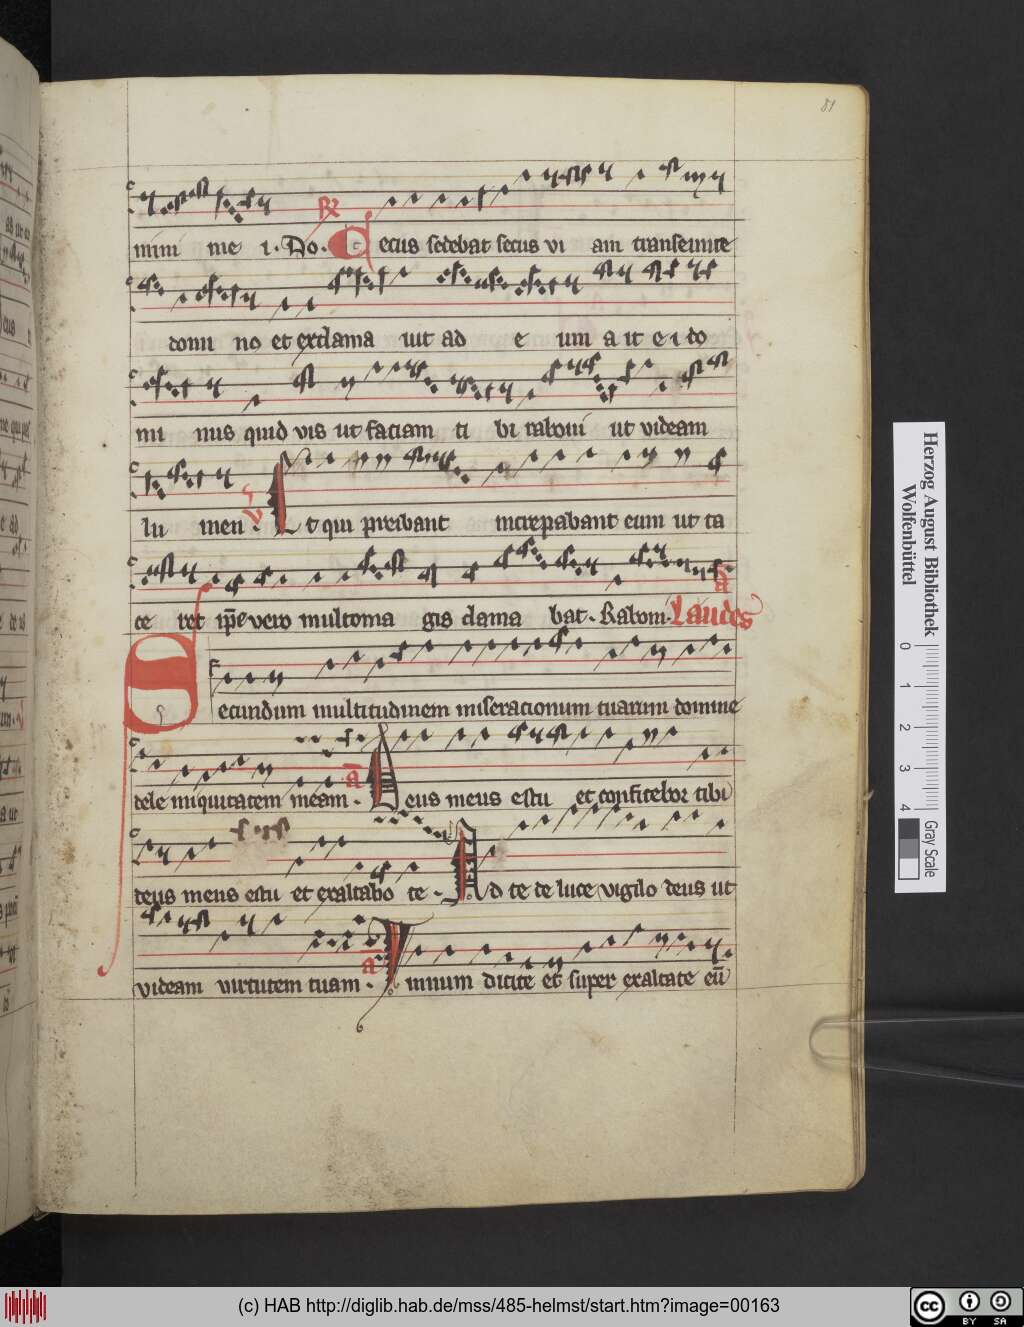 81
mini me i. Do. R Cecus sedebat secus vi am transeunte
domi no et exclama uit ad e um a it e i do
mi nus quid vis ut faciam ti bi raboni ut videam
lu men. V Et qui preibant increpabant eum ut ta
ce ret ip̄e vero multo ma gis clama bat. Raboni. Laudes a
Secundum multitudinem miseracionum tuarum domine
dele iniquitatem meam. a Deus meus es tu et confitebor tibi
deus meus es tu et exaltabo te. Ad te de luce vigilo deus ut
videam virtutem tuam. a Ymnum dicite et super exaltate eū
Herzog August Bibliothek
Wolfenbüttel
0 1 2 3 4
Gray Scale
(c) HAB http://diglib.hab.de/mss/485-helmst/start.htm?image=00163
cc BY SA